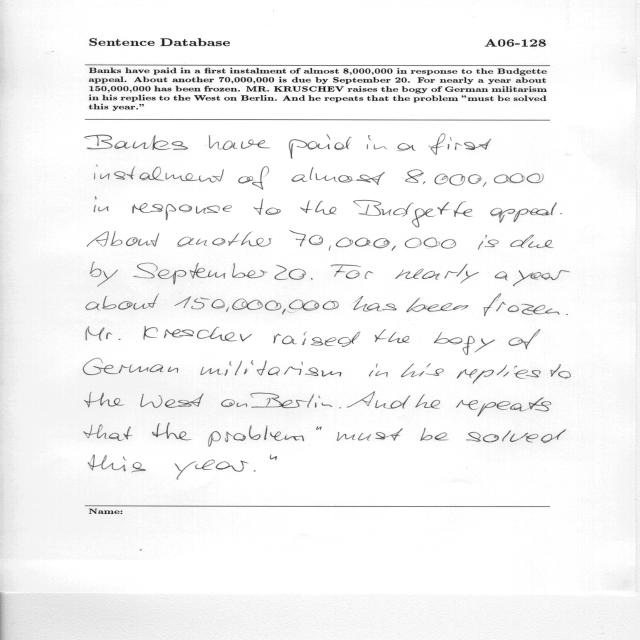 Sentence Database A06-128
Banks have paid in a first instalment of almost 8,000,000 in response to the Budgette
appeal. About another 70,000,000 is due by September 20. For nearly a year about
150,000,000 has been frozen. MR. KRUSCHEV raises the bogy of German militarism
in his replies to the West on Berlin. And he repeats that the problem "must be solved
this year."
Banks have paid in a first
instalment of almost 8.000,000
in response to the Budgette appeal.
About another 70,000,000 is due
by September 20. For nearly a year
about 150,000,000 has been frozen.
Mr. Kreschev raised the bogy of
German militarism in his replies to
the West on Berlin. And he repeats
that the problem "must be solved
this year."
Name: